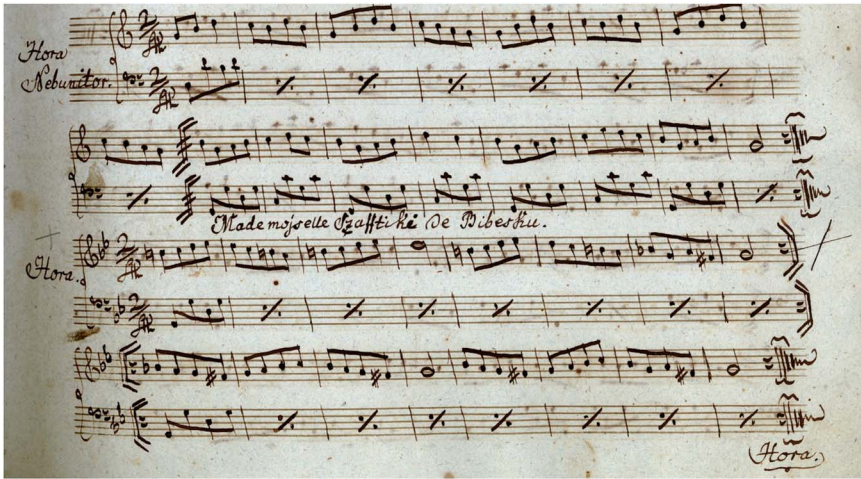 Hora
Nebunitor.
Mademojselle Szafftiki De Bibesku.
Hora.
Hora.